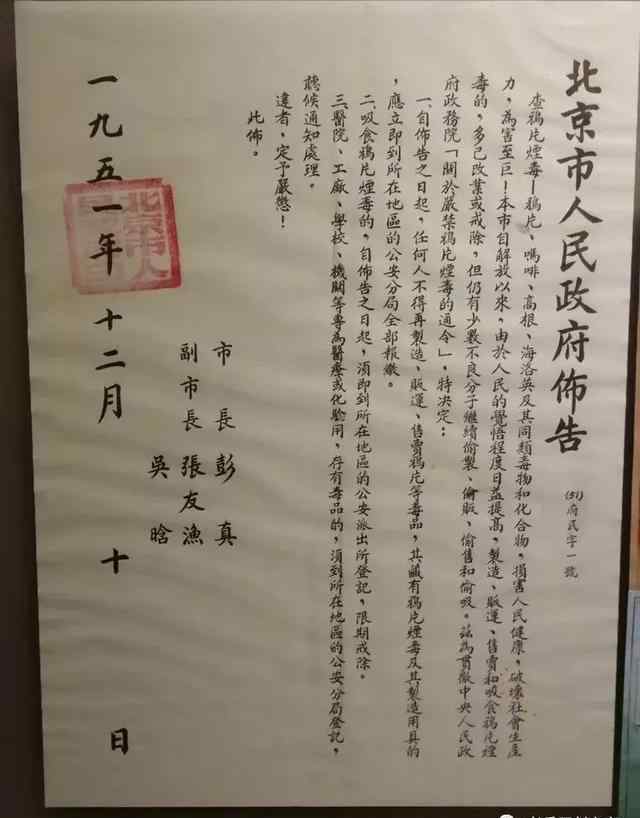 北京市人民政府佈告
(51)府民字一號
查鴉片煙毒—鴉片、嗎啡、高根、海洛英及其同類毒物和化合物，損害人民健康，破壞社會生產
力，為害至巨！本市自解放以來，由於人民的覺悟程度日益提高，製造、販運、售賣和吸食鴉片煙
毒的，多已改業或戒除，但仍有少數不良分子繼續偷製、偷販，偷售和偷吸。茲為貫徹中央人民政
府政務院「關於嚴禁鴉片煙毒的通令」，特決定：
一、自佈告之日起，任何人不得再製造、販運、售賣鴉片等毒品，其藏有鴉片煙毒及其製造用具的
，應立即到所在地區的公安分局全部報繳。
二、吸食鴉片煙毒的，自佈告之日起，須即到所在地區的公安派出所登記，限期戒除。
三、醫院、工廠、學校、機關等專為醫療或化驗用，存有毒品的，須到所在地區的公安分局登記，
聽候通知處理。
違者，定予嚴懲！
此佈。
市長 彭真
副市長 張友漁
吳晗
一九五一年十二月十日